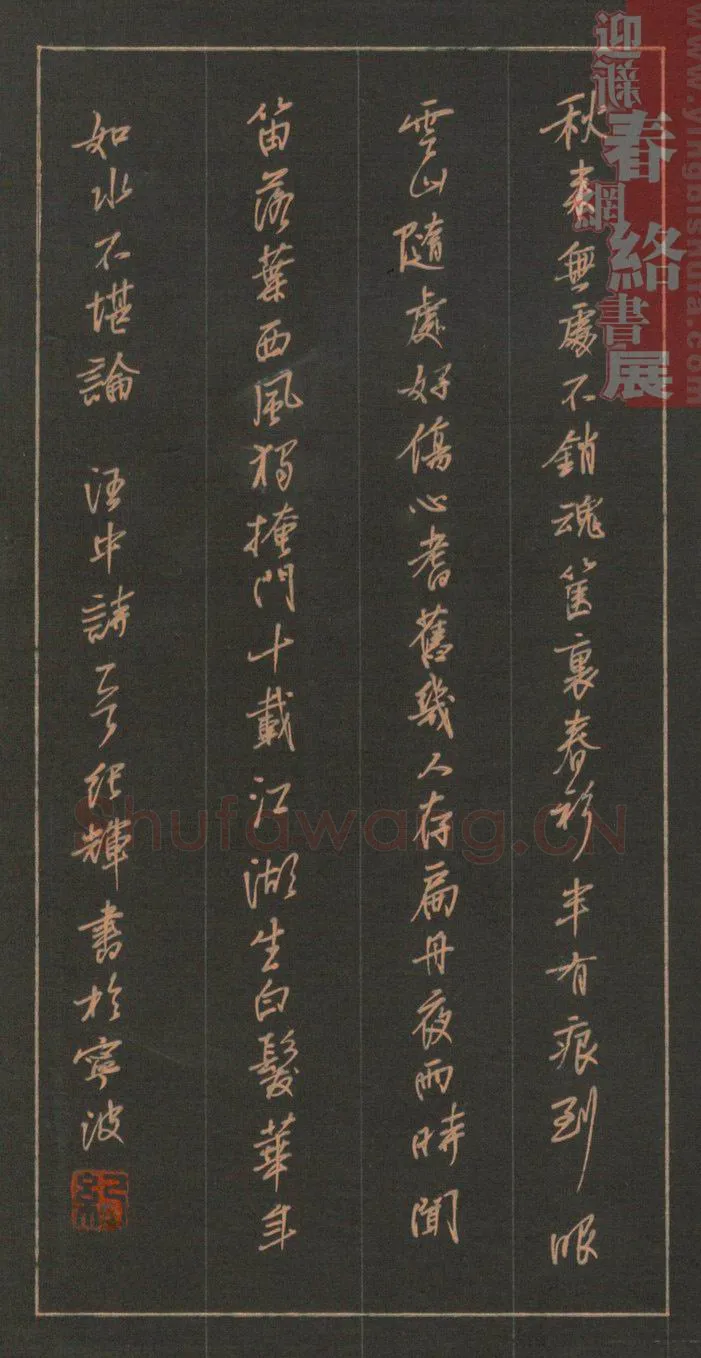 秋来無處不銷魂篋裏春衫半有痕到眼
雲山隨處好傷心耆舊幾人存扁舟夜雨時聞
笛落葉西風獨掩門十載江湖生白髮華年
如水不堪論 汪中詩一首紀輝書於寧波
迎新春網絡書展
www.yingbishufa.com
Shufawang.CN